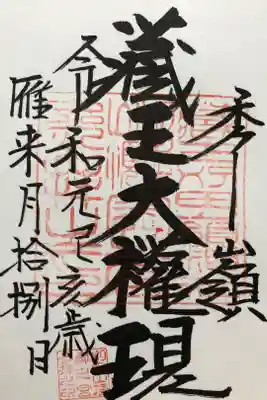 秀嶺
蔵王大權現
令和元己亥歳
雁来月拾捌日